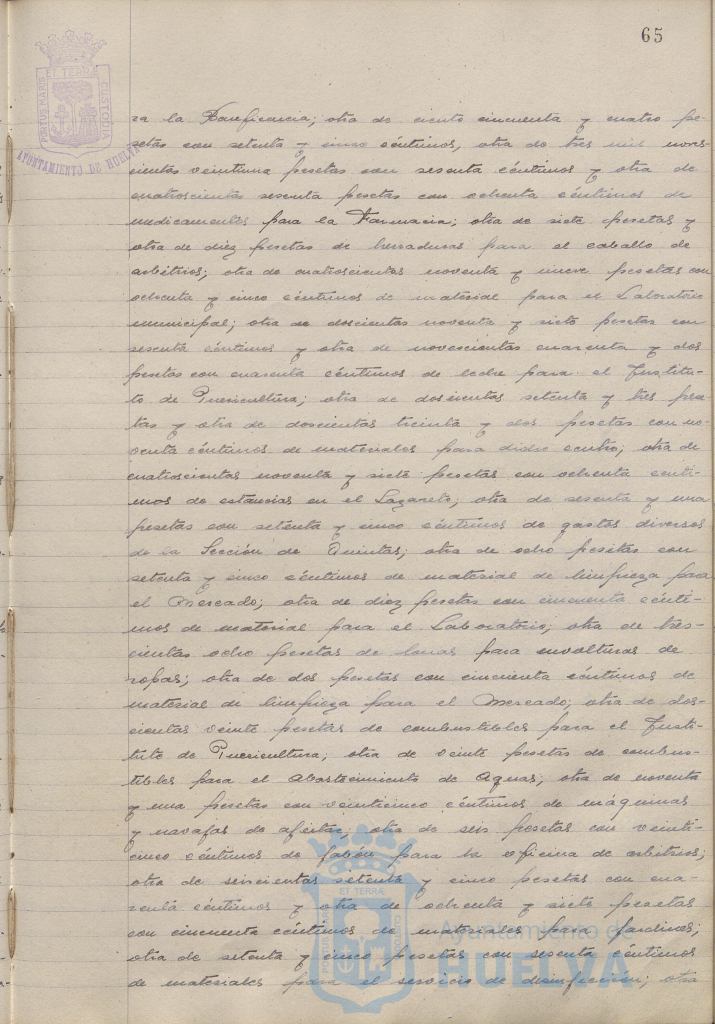 65
PORTUS MARIS ET TERRAE CUSTODIA
AYUNTAMIENTO DE HUELVA
ra la Beneficencia; otra de ciento cincuenta y cuatro pe-
setas con setenta y cinco céntimos, otra de tres mil noves-
cientas veintiuna pesetas con sesenta céntimos y otra de
cuatroscientas sesenta pesetas con ochenta céntimos de
medicamentos para la Farmacia; otra de siete pesetas y
otra de diez pesetas de herraduras para el caballo de
arbitrios; otra de cuatroscientas noventa y nueve pesetas con
ochenta y cinco céntimos de material para el Laboratorio
municipal; otra de doscientas noventa y siete pesetas con
sesenta céntimos y otra de novescientas cuarenta y dos
pesetas con cuarenta céntimos de leche para el Institu-
to de Puericultura; otra de doscientas setenta y tres pese-
tas y otra de doscientas treinta y dos pesetas con no-
venta céntimos de materiales para dicho centro; otra de
cuatroscientas noventa y siete pesetas con ochenta cénti-
mos de estancias en el Lazareto; otra de sesenta y una
pesetas con setenta y cinco céntimos de gastos diversos
de la Sección de Quintas; otra de ocho pesetas con
setenta y cinco céntimos de material de limpieza para
el Mercado; otra de diez pesetas con cincuenta cénti-
mos de material para el Laboratorio; otra de tres-
cientas ocho pesetas de lonas para envolturas de
ropas; otra de dos pesetas con cincuenta céntimos de
material de limpieza para el Mercado; otra de dos-
cientas veinte pesetas de combustibles para el Insti-
tuto de Puericultura; otra de veinte pesetas de combus-
tibles para el Abastecimiento de Aguas; otra de noventa
y una pesetas con veinticinco céntimos de máquinas
y navajas de afeitar; otra de seis pesetas con veinti-
cinco céntimos de jabón para la oficina de arbitrios;
otra de seiscientas setenta y cinco pesetas con cua-
renta céntimos y otra de ochenta y siete pesetas
con cincuenta céntimos de materiales para jardines;
otra de setenta y cinco pesetas con sesenta céntimos
de materiales para el servicio de desinfección; otra
Ayuntamiento de
HUELVA